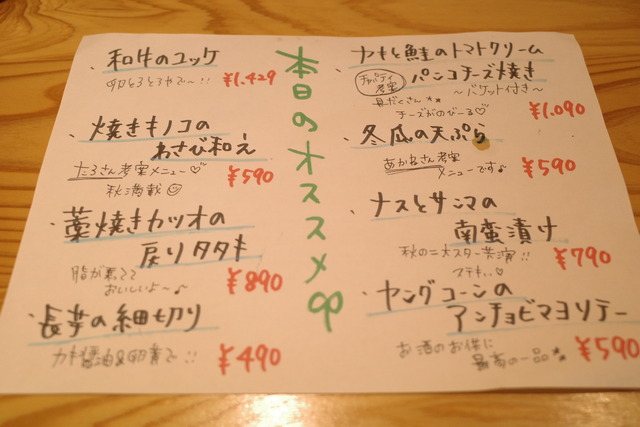 本日のオススメ
和牛のユッケ
¥1,429
焼きキノコの
わさび和え
たろさん考案メニュー♡
秋満載
¥590
藁焼きカツオの
戻りタタキ
脂が乗ってて
おいしいよ〜♪
¥890
長芋の細切り
¥490
カキと鮭のトマトクリーム
パンコチーズ焼き
〜バゲット付き〜
具だくさん
チーズがのびーる♡
¥1,090
冬瓜の天ぷら
あかねさん考案
メニューです♪
¥590
ナスとサンマの
南蛮漬け
秋の二大スター共演!!
ステキ..♡
¥790
ヤングコーンの
アンチョビマヨソテー
お酒のお供に
最高の一品
¥590